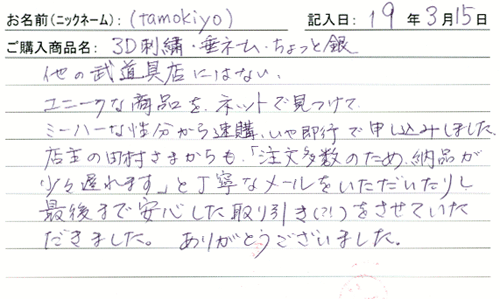 お名前(ニックネーム): (tamokiyo) 記入日: 19 年 3月 15日
ご購入商品名: 3D刺繍・垂ネーム・ちょっと銀
他の武道具店にはない、
ユニークな商品を、ネットで見つけて
ミーハーな性分から速購、いや即行で申し込みしました。
店主の田村さまからも、「注文多数のため、納品が
少々遅れます」と丁寧なメールをいただいたりし
最後まで安心した取り引き(?!)をさせていた
だきました。 ありがとうございました。